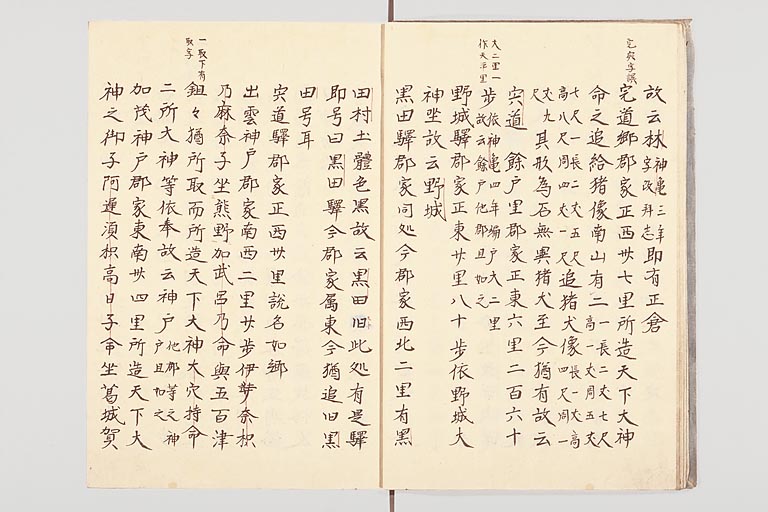 宍實字誤
故云林神亀三年字改拜志即有正倉
宍道郷郡家正西卅七里所造天下大神
命之追給猪像南山有二一長二丈七尺高一丈周五丈
七尺一長二丈五尺高八尺周四丈一尺追猪犬像長一丈高四尺周一
丈九尺其形為石無異猪犬至今猶有故云
宍道 餘戸里郡家正東六里二百六十
大二里一作天平里
步依神亀四年編戸大二里故云餘戸他郡且如之
野城驛郡家正東廿里八十步依野城大
神坐故云野城
黒田驛郡家同処今郡家西北二里有黒
田村土體色黒故云黒田旧此処有是驛
即号曰黒田驛今郡家属東今猶追旧黒
田号耳
宍道驛郡家正西卅里說名如郷
出雲神戸郡家南西二里廿步伊弉奈枳
乃麻奈子坐熊野加武呂乃命與五百津
一取下有取字
鉏々猶所取而所造天下大神大穴持命
二所大神等依奉故云神戸他郡等之神戸且如之
加茂神戸郡家東南卅四里所造天下大
神之御子阿遅須枳高日子命坐葛城賀